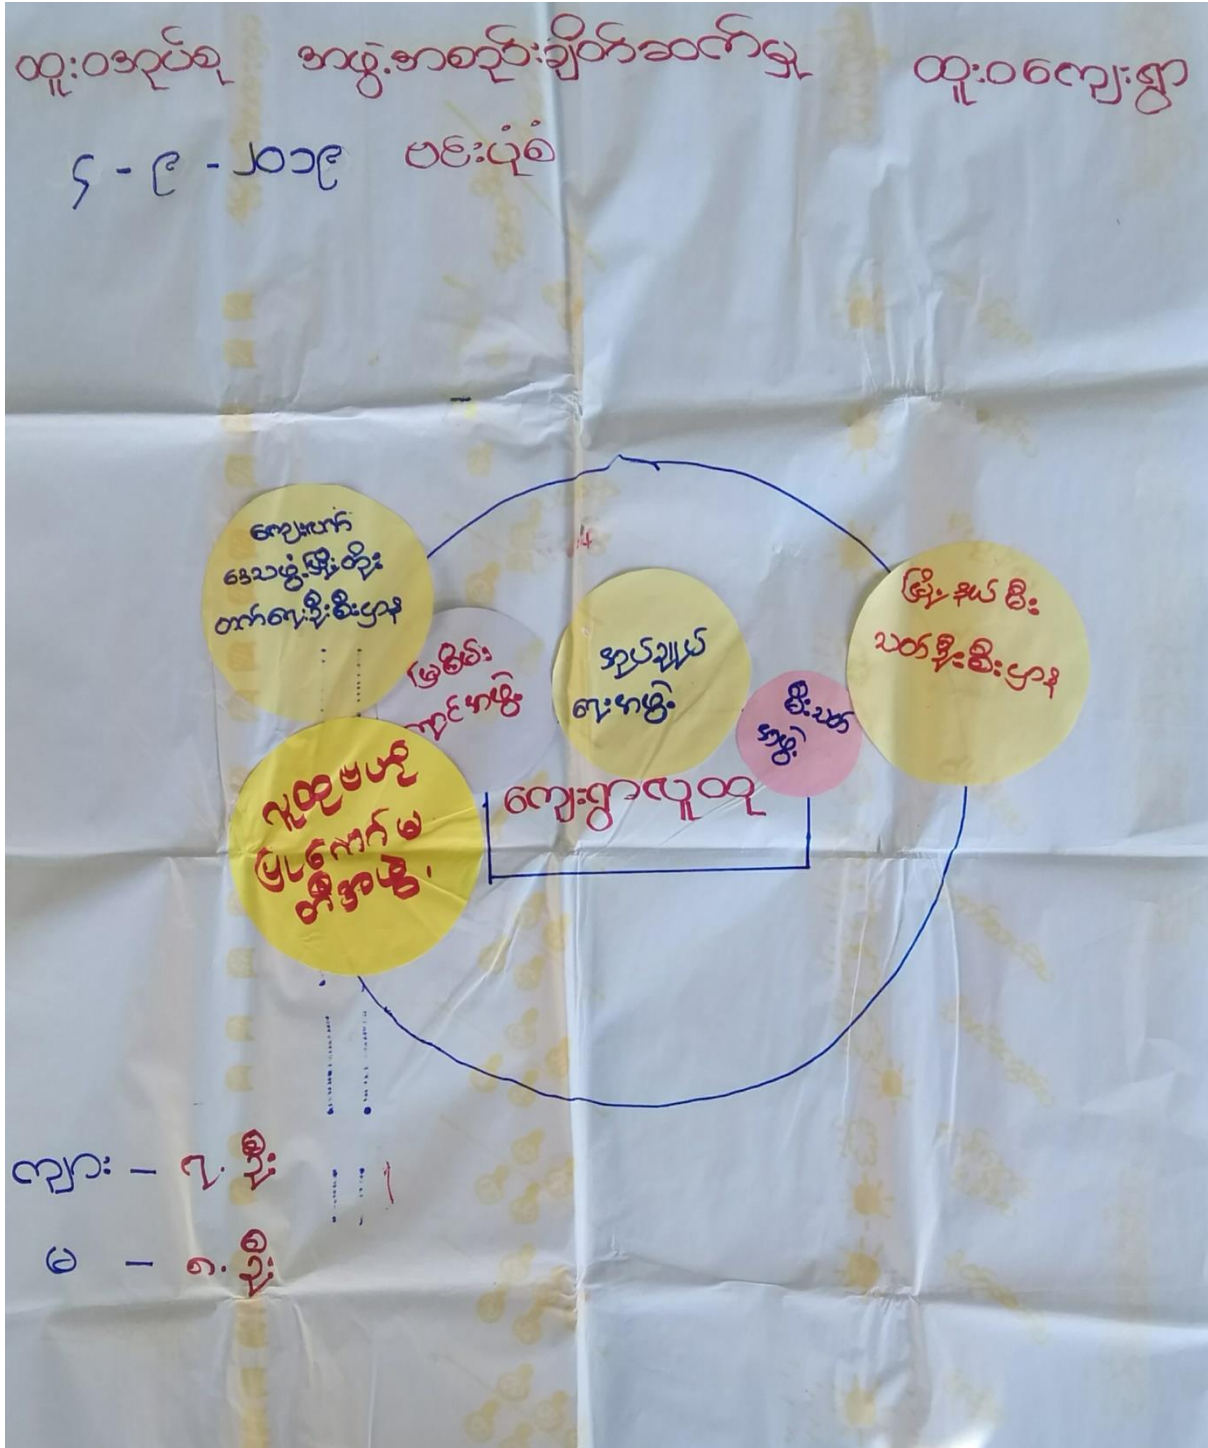 ထူးဝအုပ်စု အဖွဲ့အစည်းချိတ်ဆက်မှု ထူးဝကျေးရွာ
၄-၉-၂၀၁၉ ဗင်းပုံစံ
ကျေးလက်
ဒေသဖွံ့ဖြိုးတိုး
တက်ရေးဦးစီးဌာန
မြစိမ်း
ရောင်အဖွဲ့
အုပ်ချုပ်
ရေးအဖွဲ့
မီးသတ်
အဖွဲ့
မြို့နယ်မီး
သတ်ဦးစီးဌာန
လူထုဗဟို
ပြုကော်မ
တီအဖွဲ့
ကျေးရွာလူထု
ကျား - ၇.ဦး
မ - ၈.ဦး